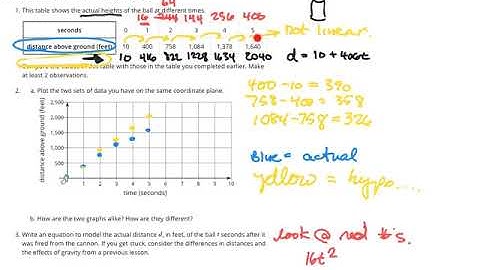 64
1. This table shows the actual heights of the ball at different times.
16 144 256 400
seconds 0 1 2 3 4 5
not linear.
distance above ground (feet) 10 400 758 1,084 1,378 1,640
10 416 822 1228 1634 2040 d = 10 + 406t
table with those in the table you completed earlier. Make
at least 2 observations.
400 - 10 = 390
758 - 400 = 358
1084 - 758 = 326
2. a. Plot the two sets of data you have on the same coordinate plane.
distance above ground (feet)
2,500
2,000
1,500
1,000
500
0 1 2 3 4 5 6 7 8 9 10
time (seconds)
Blue = actual
yellow = hypo....
b. How are the two graphs alike? How are they different?
3. Write an equation to model the actual distance d, in feet, of the ball t seconds after it
was fired from the cannon. If you get stuck, consider the differences in distances and
the effects of gravity from a previous lesson.
Look @ red #'s.
16t²